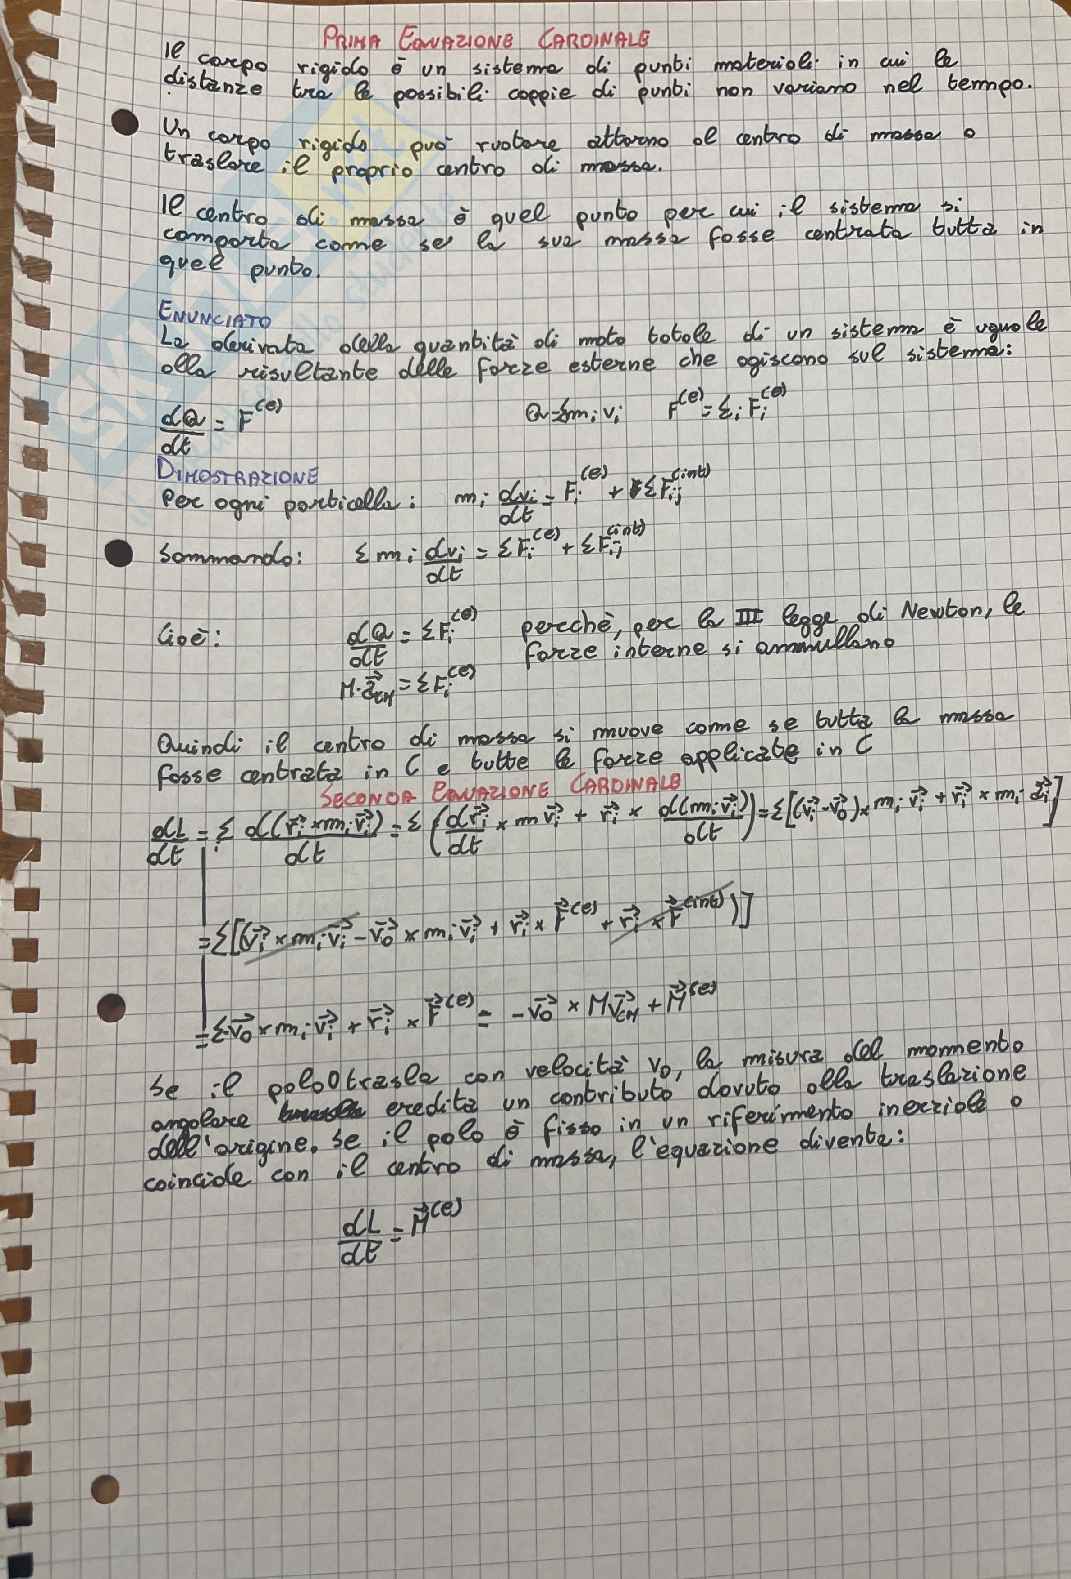 PRIMA EQUAZIONE CARDINALE
Il corpo rigido è un sistema di punti materiali in cui le
distanze tra le possibili coppie di punti non variano nel tempo.
Un corpo rigido può ruotare attorno al centro di massa o
traslare il proprio centro di massa.
Il centro di massa è quel punto per cui il sistema si
comporta come se la sua massa fosse centrata tutta in
quel punto.
ENUNCIATO
La derivata della quantità di moto totale di un sistema è uguale
alla risultante delle forze esterne che agiscono sul sistema:
dQ/dt = F^(e) Q=Σm_i v_i F^(e) = Σ_i F_i^(e)
DIMOSTRAZIONE
Per ogni particella: m_i dv_i/dt = F_i^(e) + ΣF_ij^(int)
Sommando: Σ m_i dv_i/dt = ΣF_i^(e) + ΣF_ij^(int)
Cioè: dQ/dt = ΣF_i^(e) perchè, per la III legge di Newton, le
forze interne si annullano
M·a⃗_CM = ΣF_i^(e)
Quindi il centro di massa si muove come se tutta la massa
fosse centrata in C e tutte le forze applicate in C
SECONDA EQUAZIONE CARDINALE
dL/dt = Σ_i d(r⃗_i × m_i v⃗_i)/dt = Σ (dr⃗_i/dt × m v⃗_i + r⃗_i × d(m_i v⃗_i)/dt) = Σ[(v⃗_i - v⃗_0) × m_i v⃗_i + r⃗_i × m_i a⃗_i]
= Σ[(v⃗_i × m_i v⃗_i - v⃗_0 × m_i v⃗_i + r⃗_i × F⃗^(e) + r⃗_i × F⃗^(int))]
= Σ-v⃗_0 × m_i v⃗_i + r⃗_i × F⃗^(e) = -v⃗_0 × M v⃗_CM + M⃗^(e)
Se il polo O trasla con velocità v_0, la misura del momento
angolare eredita un contributo dovuto alla traslazione
dell'origine. Se il polo è fisso in un riferimento inerziale o
coincide con il centro di massa, l'equazione diventa:
dL/dt = M⃗^(e)